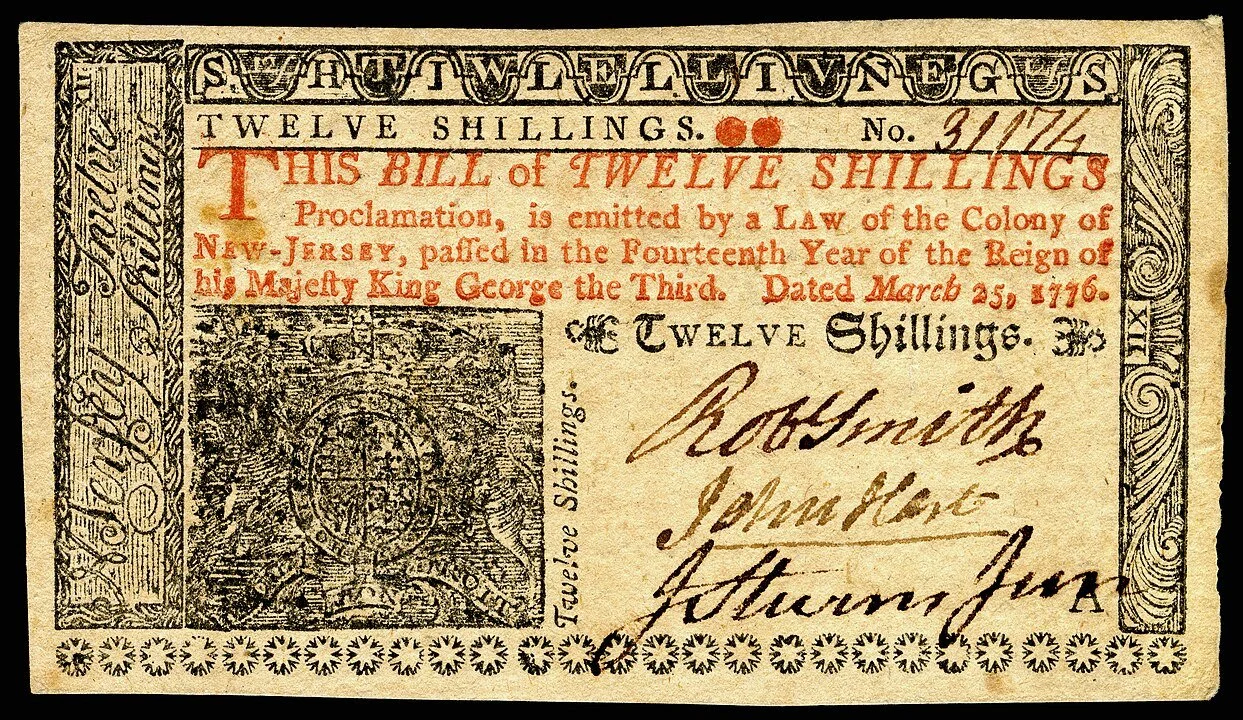 SHTIWLELLIVNEGS
TWELVE SHILLINGS. No. 31174
THIS BILL of TWELVE SHILLINGS
Proclamation, is emitted by a LAW of the Colony of
NEW-JERSEY, paſſed in the Fourteenth Year of the Reign of
his Majeſty King George the Third. Dated March 25, 1776.
TWELVE Shillings.
Twelve Shillings.
Robt Smith
John Hart
J Stevens Jun
A
N Jerſey
Twelve
Shillings
XII
XII
MON